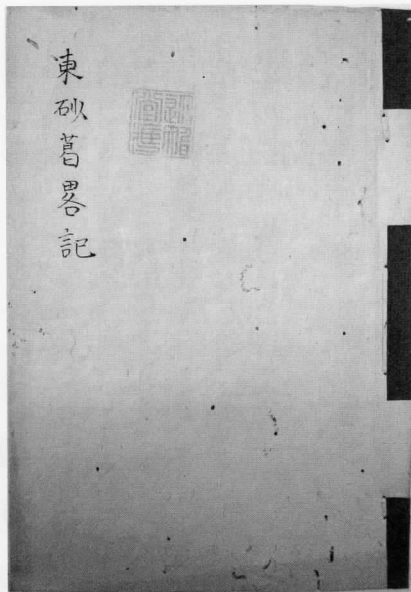 東砂葛畧記